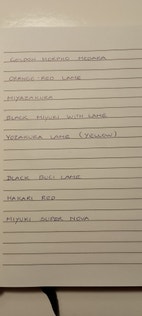 GOLDEN MORPHO MEDAKA
ORANGE RED LAME
MIYABI
BLACK MIYUKI WITH LAME
YOZAKURA LAME (YELLOW)
BLACK LAME
RED
MIYUKI SUPER NOVA